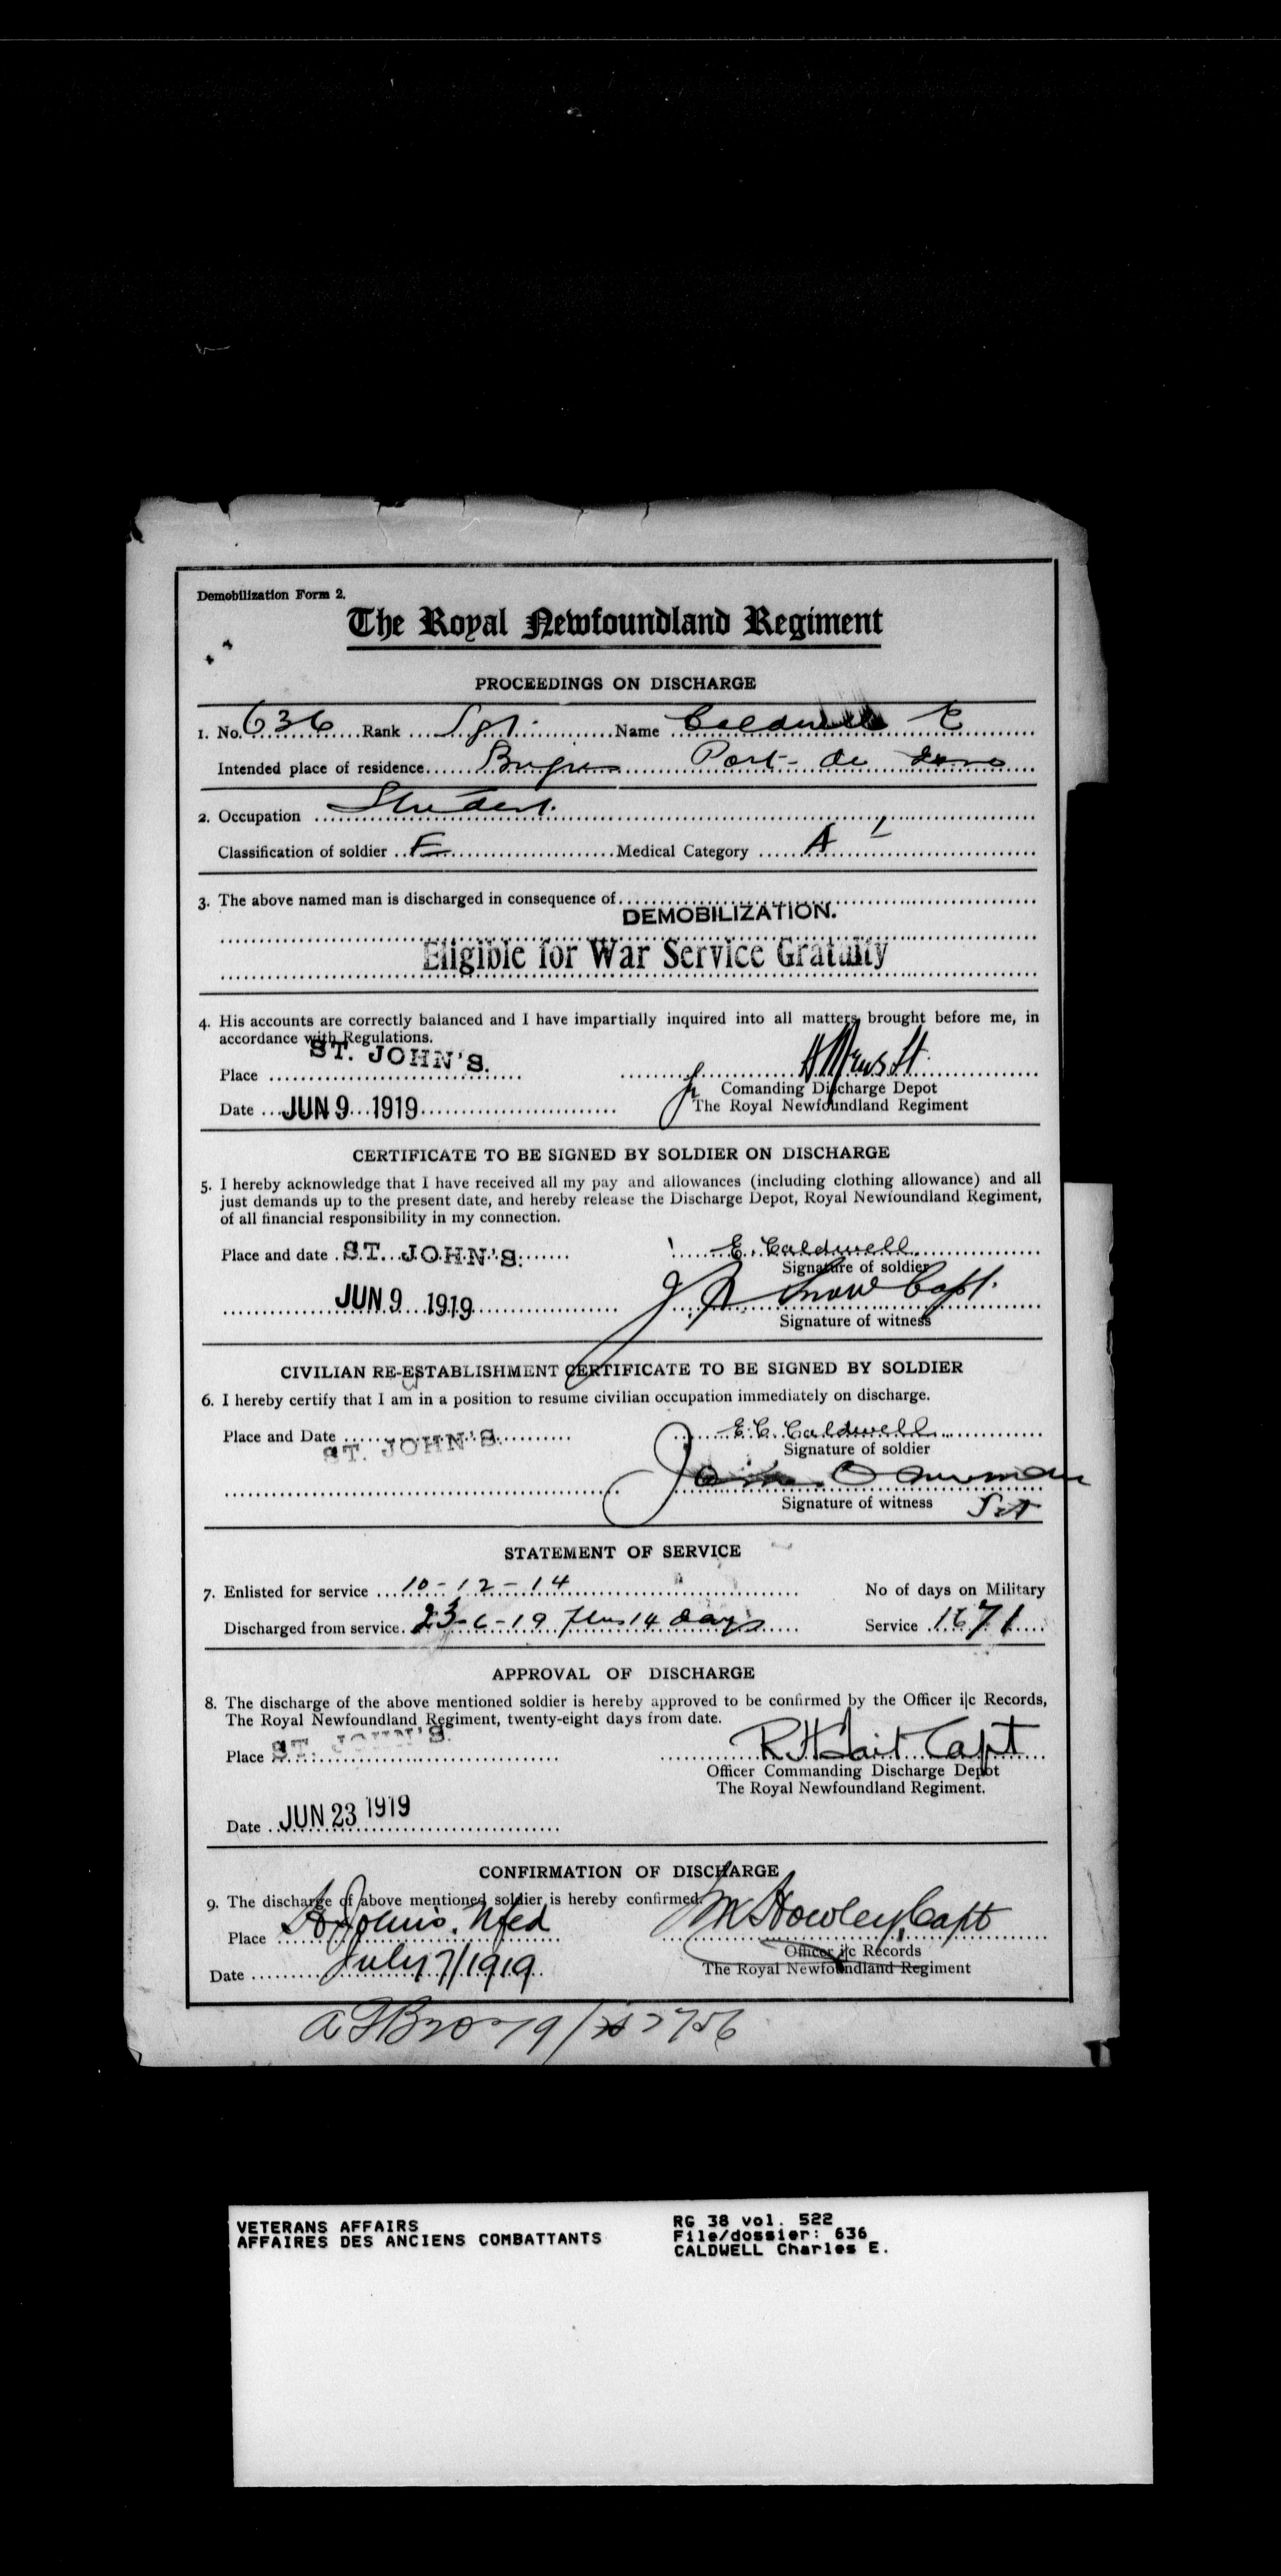 Demobilization Form 2.
The Royal Newfoundland Regiment
PROCEEDINGS ON DISCHARGE
1. No. 636 Rank Sgt. Name Caldwell E
Intended place of residence Brigus Port- de
2. Occupation Student.
Classification of soldier E Medical Category A 1
3. The above named man is discharged in consequence of
DEMOBILIZATION.
Eligible for War Service Gratuity
4. His accounts are correctly balanced and I have impartially inquired into all matters brought before me, in
accordance with Regulations.
Place ST. JOHN'S.
Comanding Discharge Depot
Date JUN 9 1919 The Royal Newfoundland Regiment
CERTIFICATE TO BE SIGNED BY SOLDIER ON DISCHARGE
5. I hereby acknowledge that I have received all my pay and allowances (including clothing allowance) and all
just demands up to the present date, and hereby release the Discharge Depot, Royal Newfoundland Regiment,
of all financial responsibility in my connection.
Place and date ST. JOHN'S. E. Caldwell
Signature of soldier
JUN 9 1919 Snow Capt.
Signature of witness
CIVILIAN RE-ESTABLISHMENT CERTIFICATE TO BE SIGNED BY SOLDIER
6. I hereby certify that I am in a position to resume civilian occupation immediately on discharge.
Place and Date ST. JOHN'S. E. C. Caldwell
Signature of soldier
Signature of witness
STATEMENT OF SERVICE
7. Enlisted for service 10-12-14 No of days on Military
Discharged from service. 23-6-19 plus 14 days Service 1671
APPROVAL OF DISCHARGE
8. The discharge of the above mentioned soldier is hereby approved to be confirmed by the Officer i|c Records,
The Royal Newfoundland Regiment, twenty-eight days from date.
Place ST. JOHN'S. R H Tait Capt
Officer Commanding Discharge Depot
The Royal Newfoundland Regiment.
Date JUN 23 1919
CONFIRMATION OF DISCHARGE
9. The discharge of above mentioned soldier is hereby confirmed.
Place St John's. Nfld Howley Capt
Officer i|c Records
Date July 7/1919 The Royal Newfoundland Regiment
VETERANS AFFAIRS
AFFAIRES DES ANCIENS COMBATTANTS
RG 38 vol. 522
File/dossier: 636
CALDWELL Charles E.